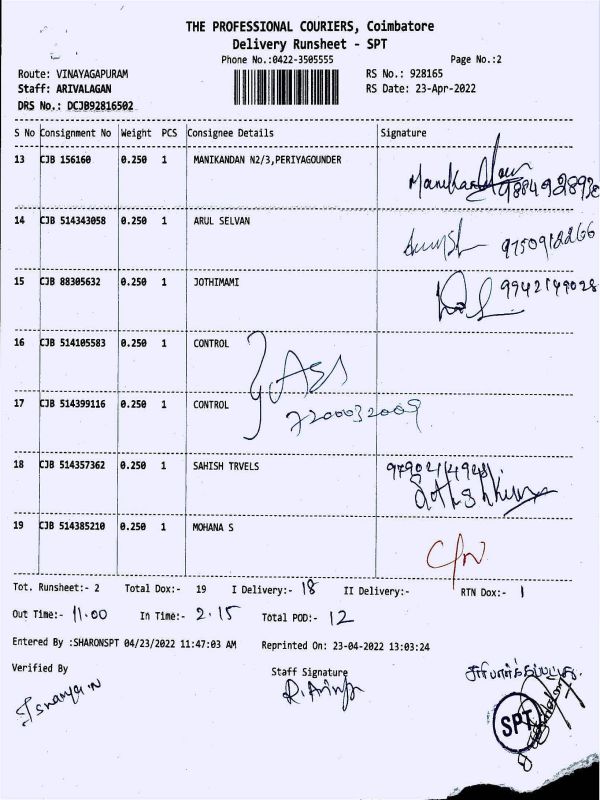 THE PROFESSIONAL COURIERS, Coimbatore
Delivery Runsheet - SPT
Phone No.:0422-3505555 Page No.:2
Route: VINAYAGAPURAM RS No.: 928165
Staff: ARIVALAGAN RS Date: 23-Apr-2022
DRS No.: DCJB92816502
S No Consignment No Weight PCS Consignee Details Signature
13 CJB 156160 0.250 1 MANIKANDAN N2/3,PERIYAGOUNDER
14 CJB 514343058 0.250 1 ARUL SELVAN
15 CJB 88305632 0.250 1 JOTHIMAMI
9942149028
16 CJB 514105583 0.250 1 CONTROL
17 CJB 514399116 0.250 1 CONTROL
7200032009
18 CJB 514357362 0.250 1 SAHISH TRVELS
19 CJB 514385210 0.250 1 MOHANA S
Tot. Runsheet:- 2 Total Dox:- 19 I Delivery:- 18 II Delivery:- RTN Dox:- 1
Out Time:- 11.00 In Time:- 2.15 Total POD:- 12
Entered By :SHARONSPT 04/23/2022 11:47:03 AM Reprinted On: 23-04-2022 13:03:24
Verified By Staff Signature
சரிபார்க்கப்பட்டது.
SPT